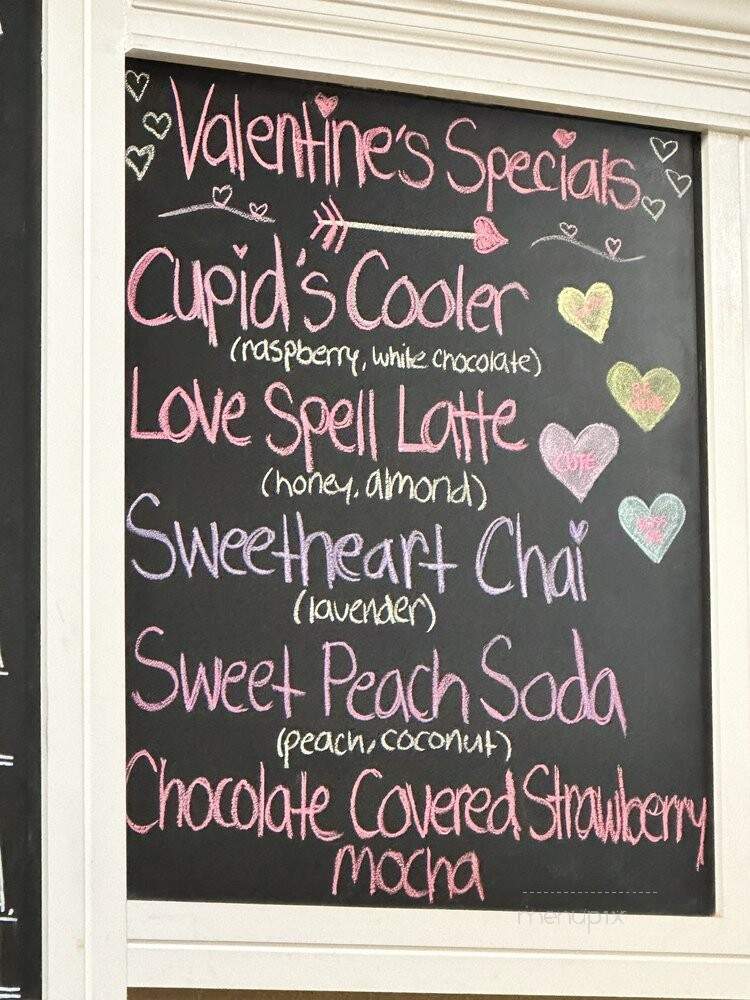 Valentine's Specials
Cupid's Cooler
(raspberry, white chocolate)
Love Spell Latte
(honey, almond)
CUTE
Sweetheart Chai
(lavender)
Sweet Peach Soda
(peach, coconut)
Chocolate Covered Strawberry
Mocha
menupix